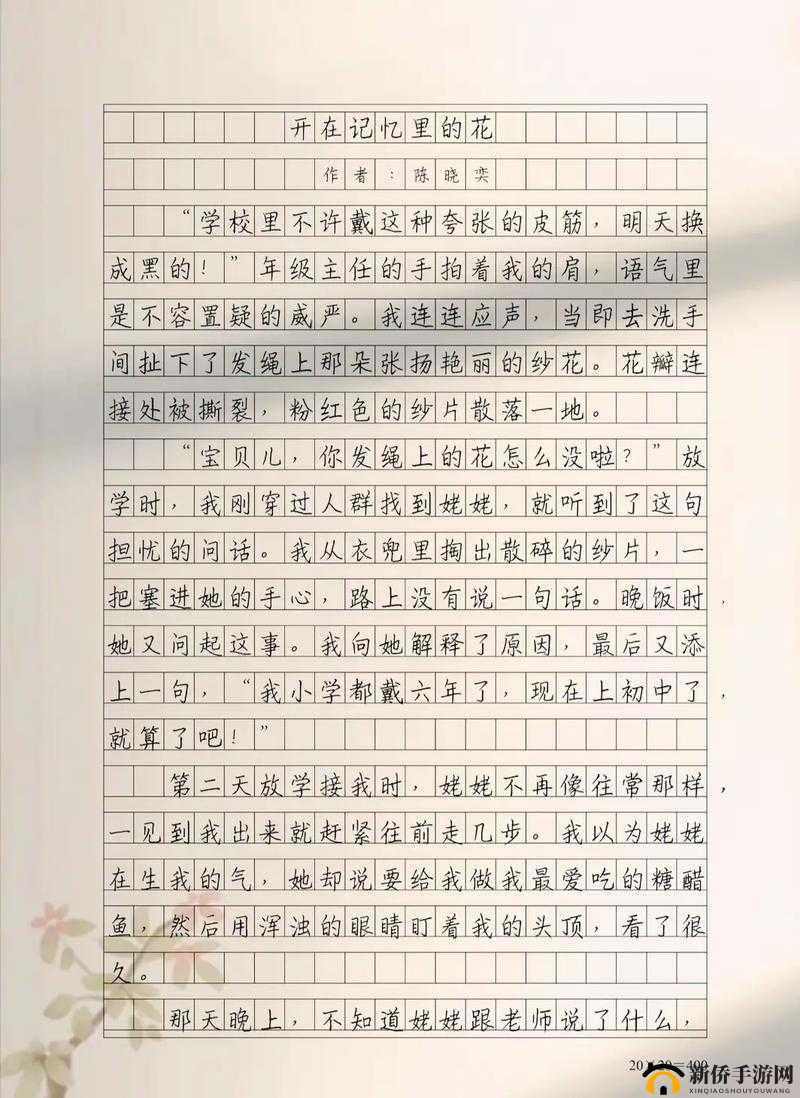 开在记忆里的花
作者：陈晓奕
“学校里不许戴这种夸张的皮筋，明天换
成黑的！”年级主任的手拍着我的肩，语气里
是不容置疑的威严。我连连应声，当即去洗手
间扯下了发绳上那朵张扬艳丽的纱花。花瓣连
接处被撕裂，粉红色的纱片散落一地。
“宝贝儿，你发绳上的花怎么没啦？”放
学时，我刚穿过人群找到姥姥，就听到了这句
担忧的问话。我从衣兜里掏出散碎的纱片，一
把塞进她的手心，路上没有说一句话。晚饭时，
她又问起这事。我向她解释了原因，最后又添
上一句，“我小学都戴六年了，现在上初中了，
就算了吧！”
第二天放学接我时，姥姥不再像往常那样，
一见到我出来就赶紧往前走几步。我以为姥姥
在生我的气，她却说要给我做我最爱吃的糖醋
鱼，然后用浑浊的眼睛盯着我的头顶，看了很
久。
那天晚上，不知道姥姥跟老师说了什么，
20×20=400
新侨手游网
XINQIAOSHOUYOUWANG